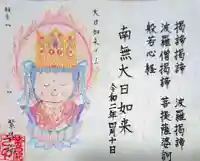 掲諦掲諦 波羅掲諦
波羅僧掲諦 菩提薩婆訶
般若心経
南無大日如来
令和二年四月十日
大日如来